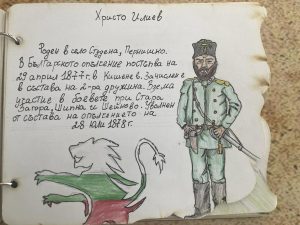 Христо Илиев
Роден в село Студена, Пернишко.
В Българското опълчение постъпва на
29 април 1877 г. в Кишенев. Зачислен е
в състава на 2-ра дружина. Взема
участие в боевете при Стара
Загора, Шипка и Шейново. Уволнен
от състава на опълчението на
28 юли 1878г.